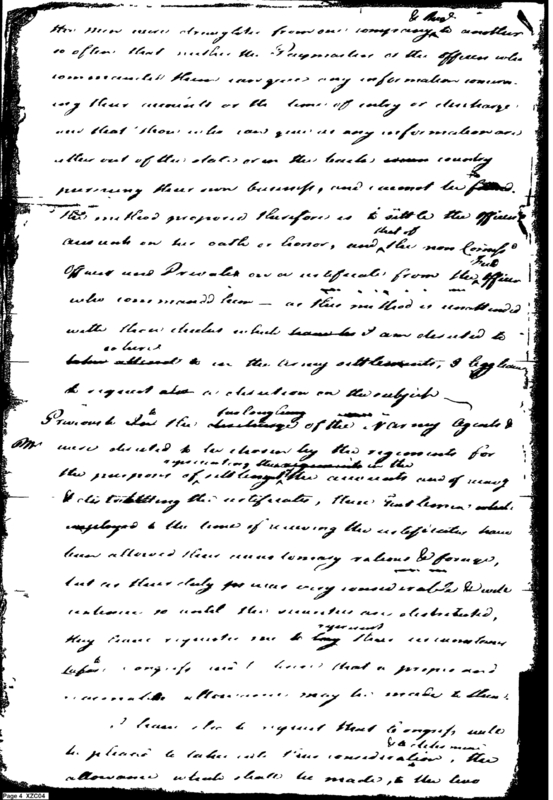 & Regt
the men were draughted from one company to another
so often that neither the Paymasters or the officers who
commanded them can give any information concern-
ing their accounts or the time of entry or discharge
and that those who can give us any information are
either out of the state or in the back country
pursuing their own business, and cannot be found.
The method proposed therefore is to settle the officers
accounts on his oath or honor, and that of the non Comss^d
Officers and Privates on a certificate from the Field Officer
who commanded him — as this method is unattended
with those checks which I am directed to
adhere to in the Army settlements, I beg leave
to request a direction on the subject
Previous to the of the Army Agents
were directed to be chosen by the regiments for
representing the in the
the purpose of settling the accounts and of
& distributing the certificates, these Gentlemen
employed to the time of receiving the certificates have
been allowed their customary rations & forage,
but as their duty was very considerable & will
continue so until the securities are distributed,
they have requested me to represent their circumstances
to Congress and I hope that a proper and
reasonable allowance may be made to them.
I have also to request that Congress will
be pleased to take into their consideration, & to determine the
allowance which shall be made, to the two
Page 4 XZC04